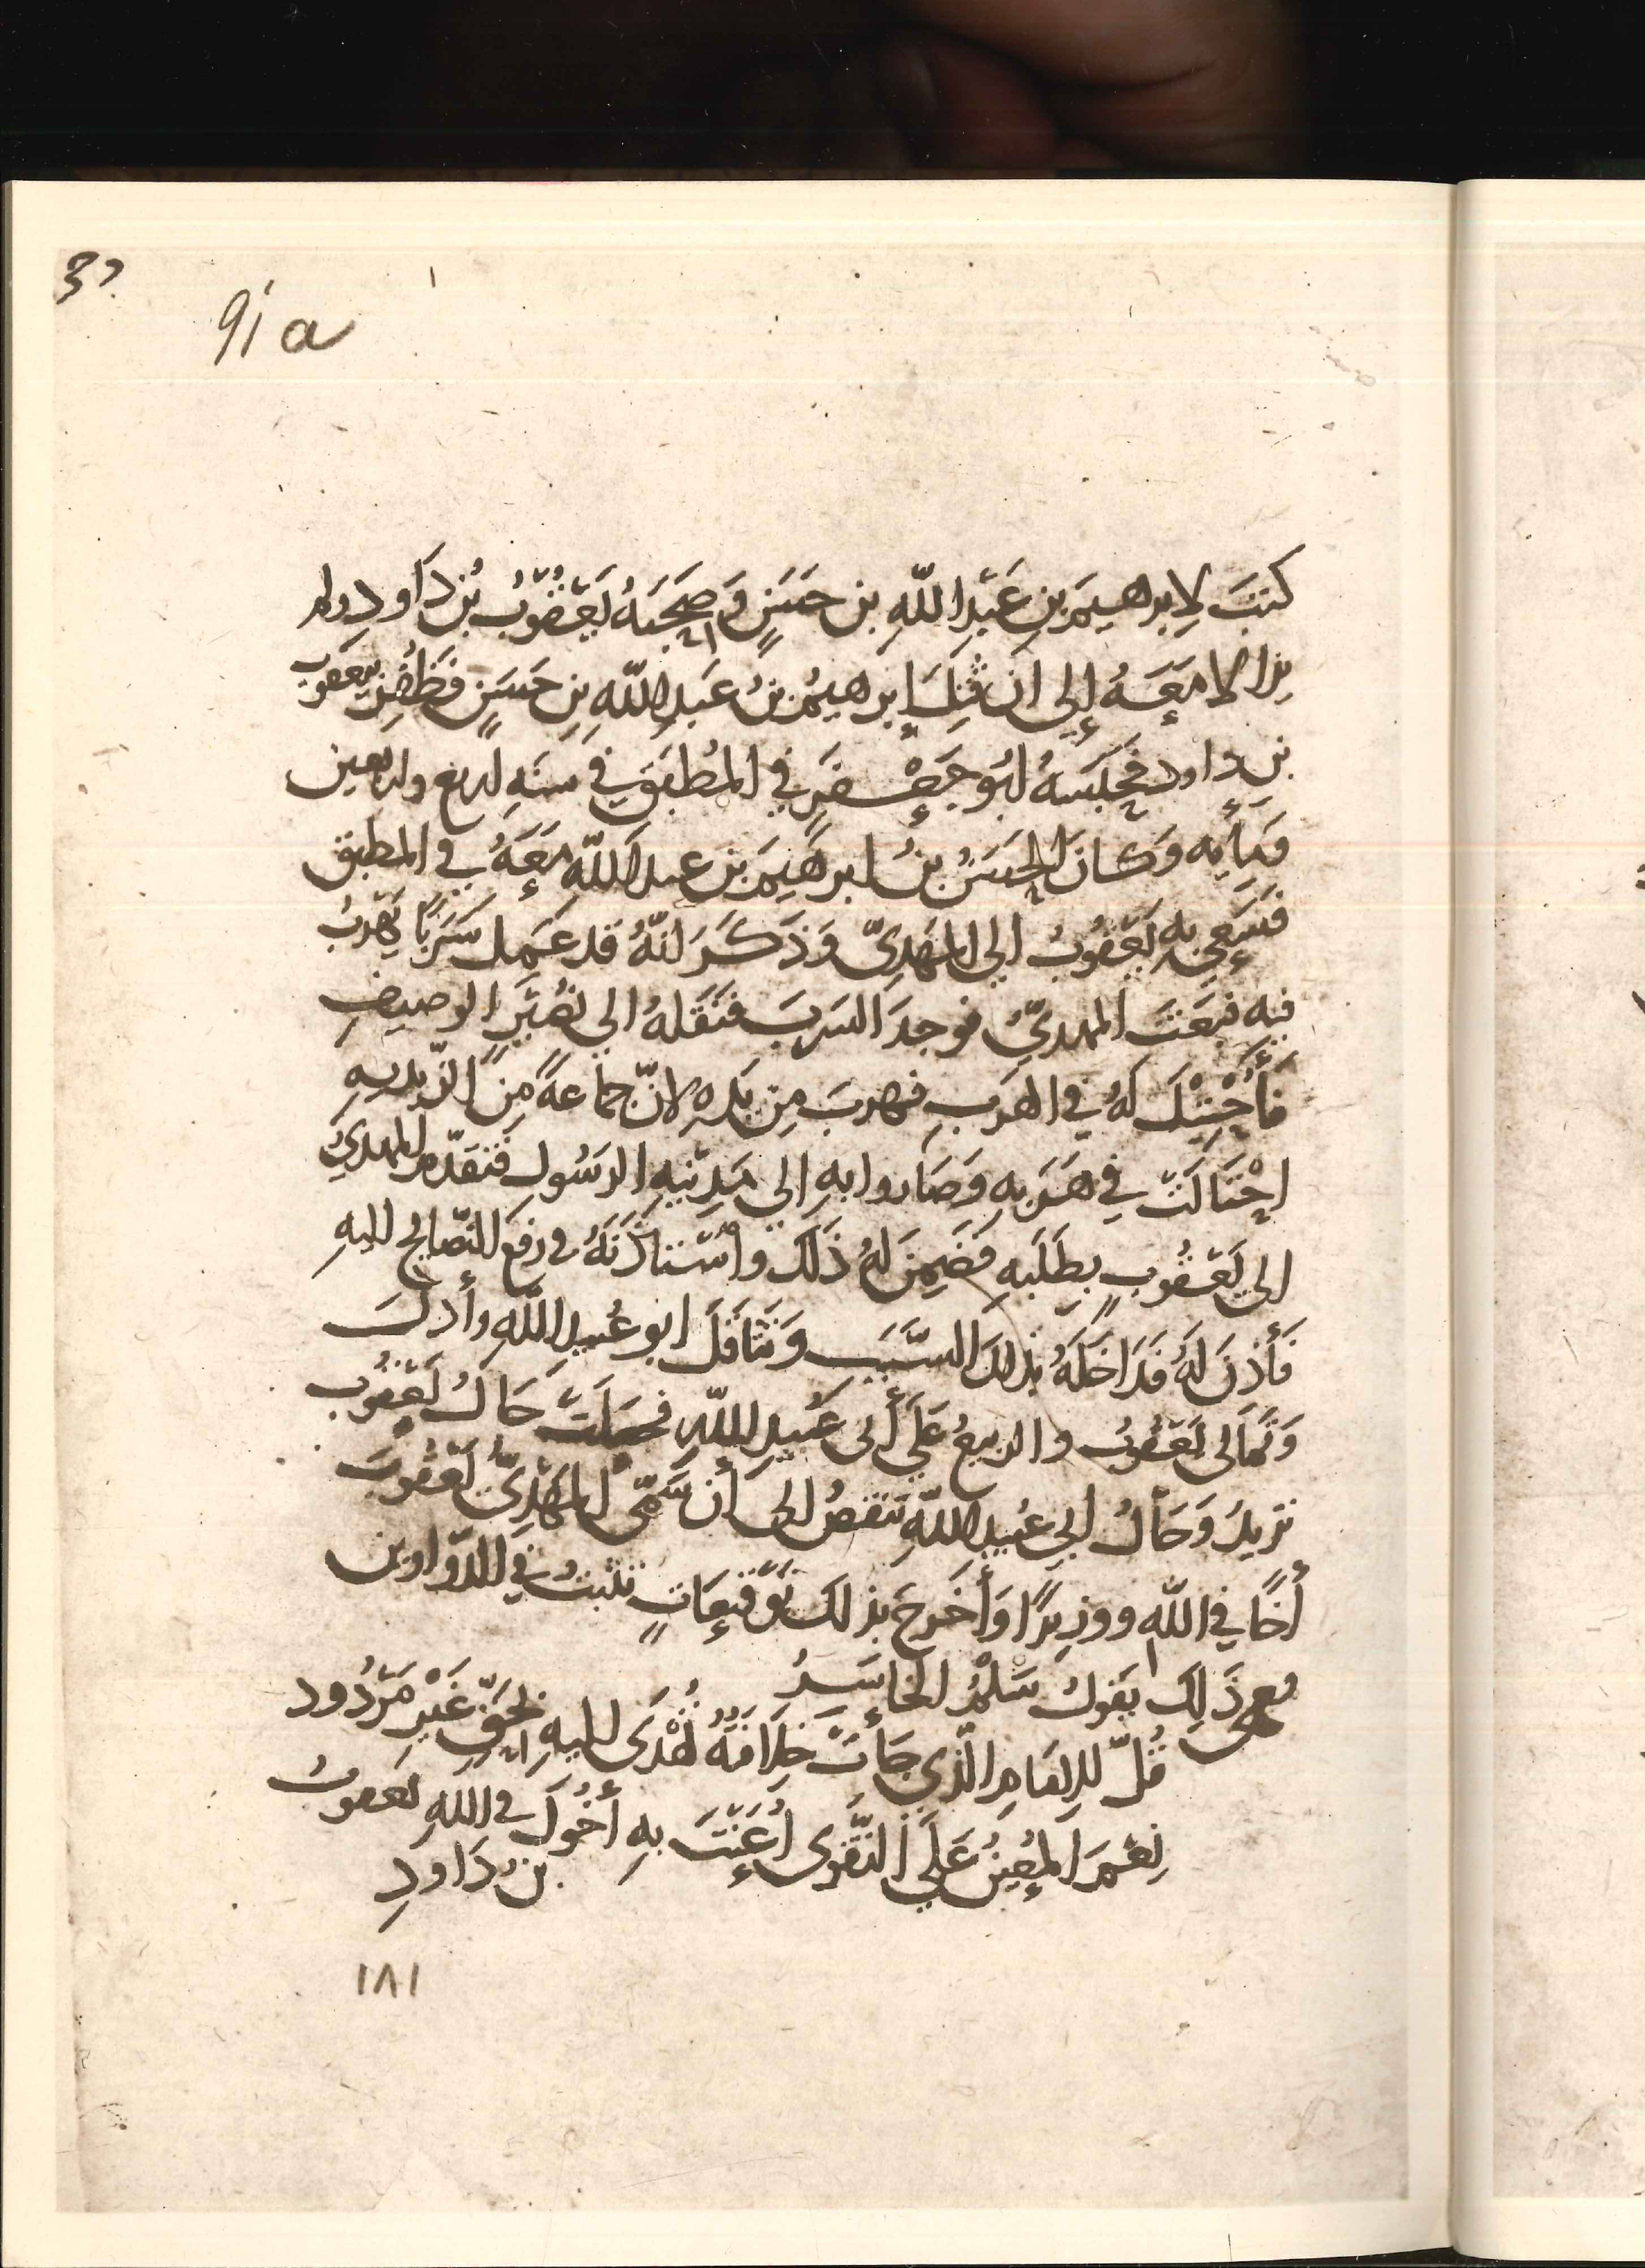 3?
91a
كتبَ لإبرهيمَ بنِ عَبْدِ اللّهِ بن حَسَنٍ وَصَحِبَهُ يَعْقُوْبُ بْنُ دَاود ولم
يزالا مَعَهُ إلى ان قُتِلَ إبرهيمُ بنُ عَبدِ اللّهِ بنِ حَسَنٍ فَظُفِرَ بيعقوب
بن داود فَحَبَسَهُ ابُو جَعْفَرٍ في المُطْبَقِ في سَنَةِ اربع واربعين
وَمِايه وَكانَ الحَسَنُ بنُ ابرهَيمَ بن عبد اللّهِ مَعَهُ في المطبق
فَسَعَى بِهِ يَعْقُوبُ الى المَهْدِيّ وَذَكَرَ انّهُ قد عَمِل سَرَبًا يَهْربُ
فيه فبَعَثَ المهديُّ فوجدَ السَربَ فَنَقَلَهُ الى نُصَيْرٍ الوصيفِ
فَأُحْتِيْلَ لهُ في الهَرَبِ فهربَ مِن يَدِهِ لانّ جماعةً مِنَ الزّيديه
احْتَالَتْ في هَرَبِهِ وَصَاروا بهِ الى مَدِيْنِهِ الرَسُولِ فَتقَدّم المهديُ
الى يَعْقُوبٍ بِطَلَبِهِ فَضَمِنَ لهُ ذَلكَ واسْتَاذَنَهُ في رفعِ النّصَايحِ اليهِ
فَأَذنَ لهُ فَدَاخَلَهُ بذلك السَّبَبِ وَتَثَاقَلَ ابو عُبيدِ اللّهِ وأدلَّ
وَتَمالى يَعْقُوبُ والربيعُ عَلَى أَبى عُبيدِ اللّهِ فجعلَتْ حَالُ يَعْقُوب
تزيدُ وَحَالُ ابى عُبيدِ اللّهِ تنقصُ الى أن سَمّى المَهْدِىُّ يَعْقُوبَ
أخًا في اللّهِ ووزِيرًا وَأَخرجَ بذلكَ تَوْقيعَاتٍ تثبتُ في الدّواوين
مع ذَلِكَ يقولُ سَلْمُ الخاسِرُ
قُلْ للإمَامِ الّذي جَأَتْ خِلَافَتُهُ تُهْدَى اليهِ بحَقٍّ غَيْرِ مَرْدُود
نِعْمَ المُعِينُ عَلَى التَّقْوَى أُعِنْتَ بهِ أخُوكَ في اللّهِ يعقوبُ
بنُ دَاودِ
١٨١